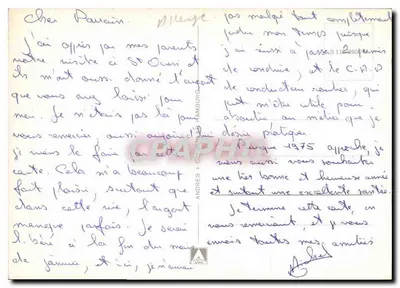 Cher Parrain.
J'ai appris par mes parents
votre visite à St Ouen et
ils m'ont aussi donné l'argent
que vous avez laissé pour
moi. Je n'étais pas là pour
vous remercier, aussi aujourd'hui
je viens le faire par cette
carte. Cela m'a beaucoup
fait plaisir, surtout que
dans cette vie, l'argent
manque parfois. Je serai
libéré à la fin du mois
de janvier, et ici, je n'aurai
pas malgré tout complètement
perdu mon temps puisque
j'ai réussi à passer 2 permis
de conduire, et le C.A.P
de conducteur routier, qui
peut m'être utile pour
aboutir au métier que je
désire pratiquer.
L'année 1975 approche, je
viens aussi vous souhaiter
une très bonne et heureuse année
et surtout une excellente santée.
Je termine cette carte, en
vous remerciant, et je vous
envoie toutes mes amitiés
CPARAMA